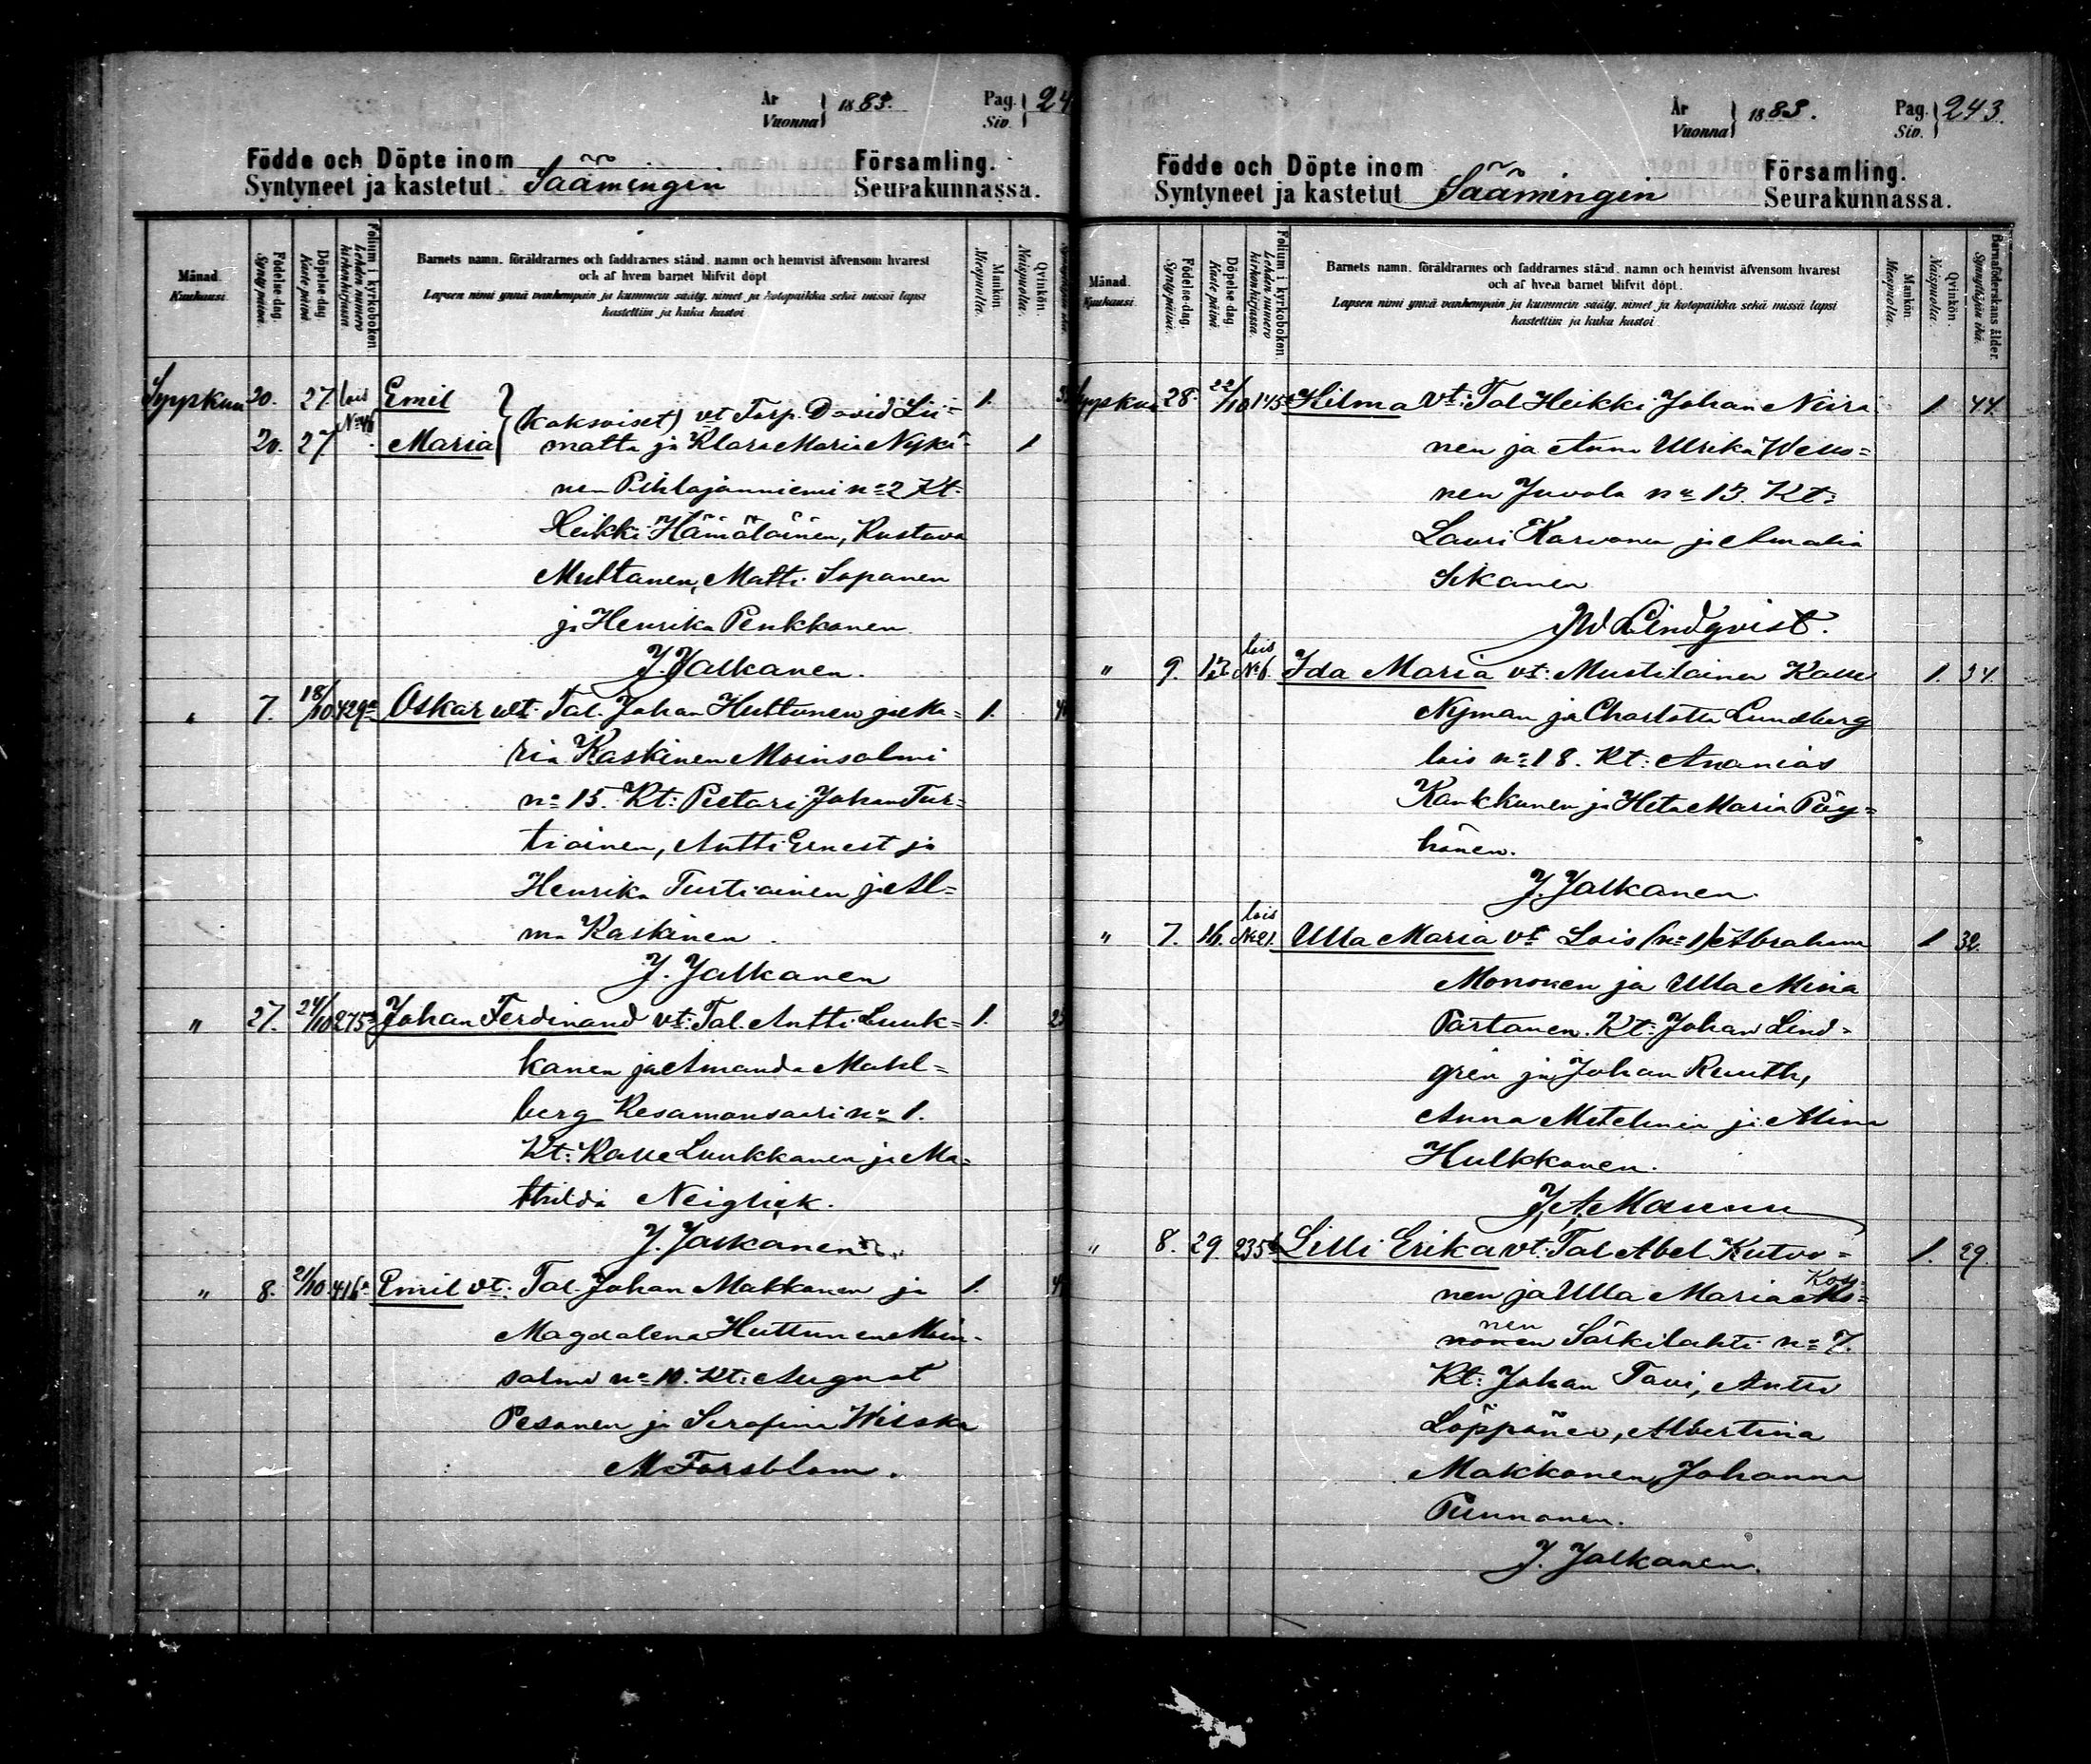 År
Vuonna } 1883.
Pag.
Siv. } 24
Födde och Döpte inom Församling.
Syntyneet ja kastetut Säämingin Seurakunnassa.
Månad. Kuukausi.
Födelse-dag. Syntypäivä.
Döpelse-dag. Kaste päivä.
Folium i kyrkoboken. Lehden numero kirkonkirjassa.
Barnets namn, föräldrarnes och faddrarnes stånd, namn och hemvist äfvensom hvarest
och af hvem barnet blifvit döpt.
Lapsen nimi ynnä vanhempain ja kummein sääty, nimet ja kotopaikka sekä missä lapsi
kastettiin ja kuka kastoi
Mankön. Miespuolta.
Qvinkön. Naispuolta.
Syyskuu 20. 27. lois Emil 1.
(kaksoiset) vt Torp. David Lii=
20. 27 No 46 Maria matta ja Klara Maria Nykä= 1
nen Pihlajanniemi no 2 Kt:
Heikki Hämäläinen, Kustava
Multanen, Matti Sopanen
ja Henrika Penkkonen
J. Jalkanen.
" 7. 18/10 429a Oskar vt: Tal. Johan Huttunen ja Ma= 1.
ria Kaskinen Moinsalmi
no 15. Kt: Pietari Johan Tur=
tiainen, Antti Ernest ja
Henrika Turtiainen ja Al=
ma Kaskinen.
J. Jalkanen
" 27. 24/10 275 Johan Ferdinand vt: Tal. Antti Luuk= 1.
kanen ja Amanda Mahl=
berg Kesamonsaari no 1.
Kt: Kalle Luukkanen ja Ma=
thilda Neiglick.
J. Jalkanen
" 8. 21/10 416a Emil vt: Tal. Johan Makkonen ja 1.
Magdalena Huttunen Moin=
salmi no 10. Kt: August
Pesonen ja Serafina Wilska
M Forsblom.
År
Vuonna } 1883.
Pag.
Siv. } 243.
Födde och Döpte inom Församling.
Syntyneet ja kastetut Säämingin Seurakunnassa.
Månad. Kuukausi.
Födelse-dag. Syntypäivä.
Döpelse-dag. Kaste päivä.
Folium i kyrkoboken. Lehden numero kirkonkirjassa.
Barnets namn, föräldrarnes och faddrarnes stånd, namn och hemvist äfvensom hvarest
och af hvem barnet blifvit döpt.
Lapsen nimi ynnä vanhempain ja kummein sääty, nimet ja kotopaikka sekä missä lapsi
kastettiin ja kuka kastoi
Mankön. Miespuolta.
Qvinkön. Naispuolta.
Barnaföderskans ålder. Synnyttäjän ikä.
Syyskuu 28. 22/10 145a Hilma vt: Tal Heikki Johan Neira 1 44.
nen ja Anna Ulrika Wello=
nen Juvola no 13. Kt:
Lauri Karvonen ja Amalia
Sikanen
JW Lindqvist.
" 9. 13 lois No 6. Ida Maria vt: Mustilainen Kalle 1. 34.
Nyman ja Charlotta Lundberg
lois no 18. Kt: Ananias
Kankkunen ja Heta Maria Pöy=
hönen.
J. Jalkanen.
" 7. 16. lois No 21. Ulla Maria vt Lois (no 1) Abraham 1 32.
Mononen ja Ulla Mina
Partanen. Kt: Johan Lind=
gren ja Johan Ruuth,
Anna Metelinen ja Mina
Hulkkonen.
J. A. Manninen
" 8. 29. 235b Lilli Erika vt: Tal Abel Kutvo= 1. 29.
nen ja Ulla Maria Mo= Koso=
nonen nen Särkilahti no 7.
Kt: Johan Tavi, Antti
Löppönen, Albertina
Makkonen, Johanna
Punnonen.
J. Jalkanen.